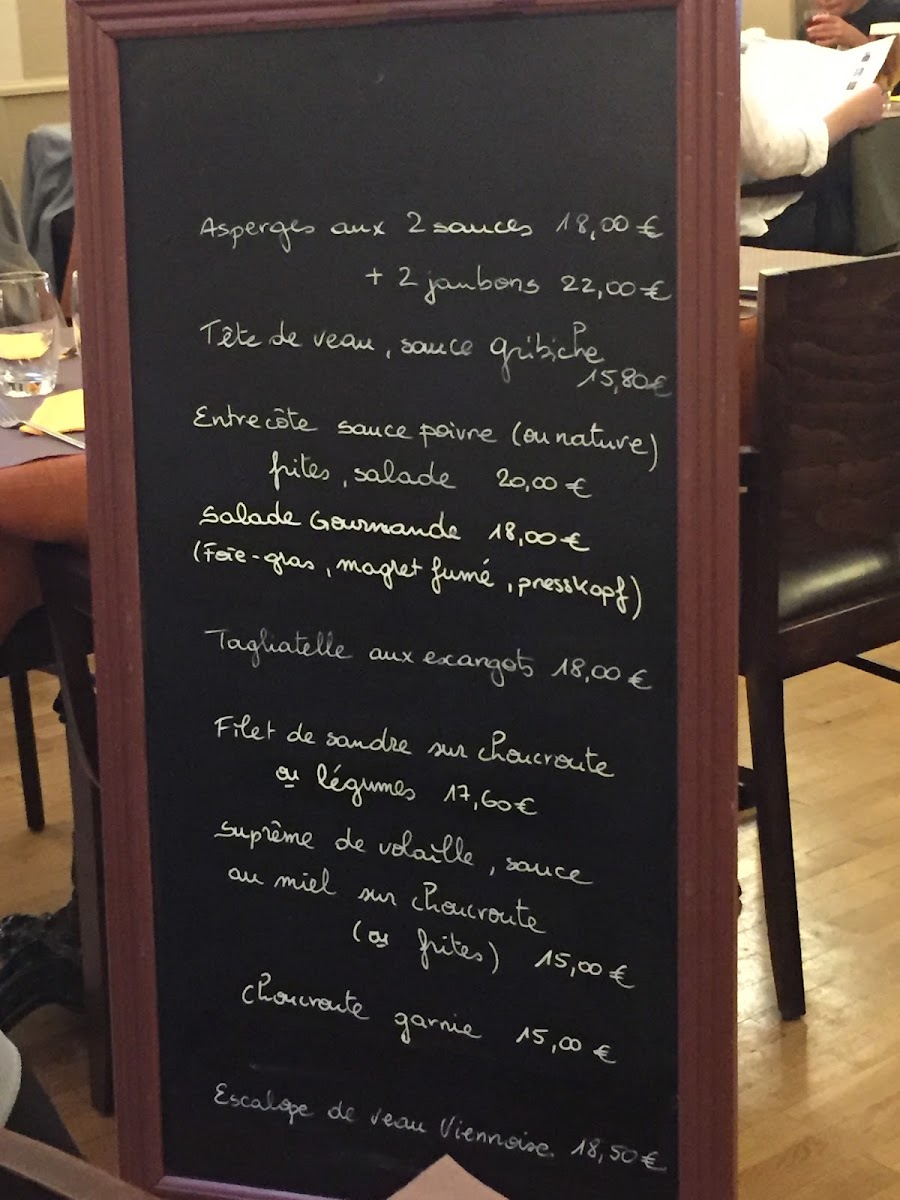 Asperges aux 2 sauces 18,00 €
+ 2 jambons 22,00 €
Tête de veau, sauce gribiche
15,80 €
Entrecôte sauce poivre (ou nature)
frites, salade 20,00 €
Salade Gourmande 18,00 €
(Foie-gras, magret fumé, presskopf)
Tagliatelle aux escargots 18,00 €
Filet de sandre sur choucroute
ou légumes 17,60 €
suprême de volaille, sauce
au miel sur choucroute
(ou frites) 15,00 €
choucroute garnie 15,00 €
Escalope de veau Viennoise 18,50 €